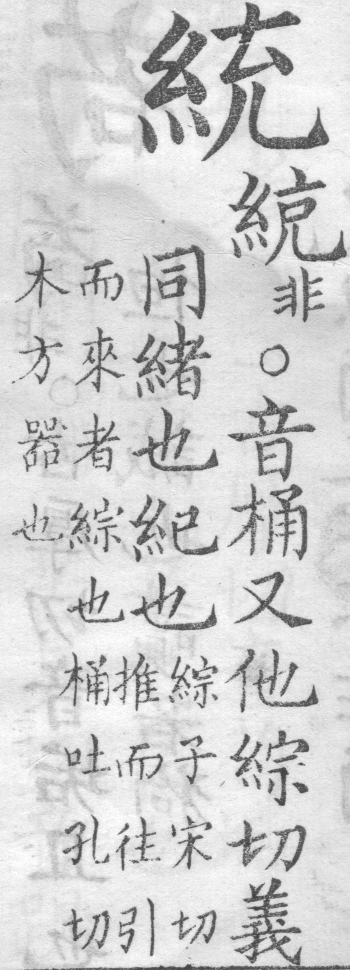 統
綂非○音桶又他綜切義
同緒也紀也
綜子宋切
推而徃引
而來者綜也桶吐孔切
木方噐也